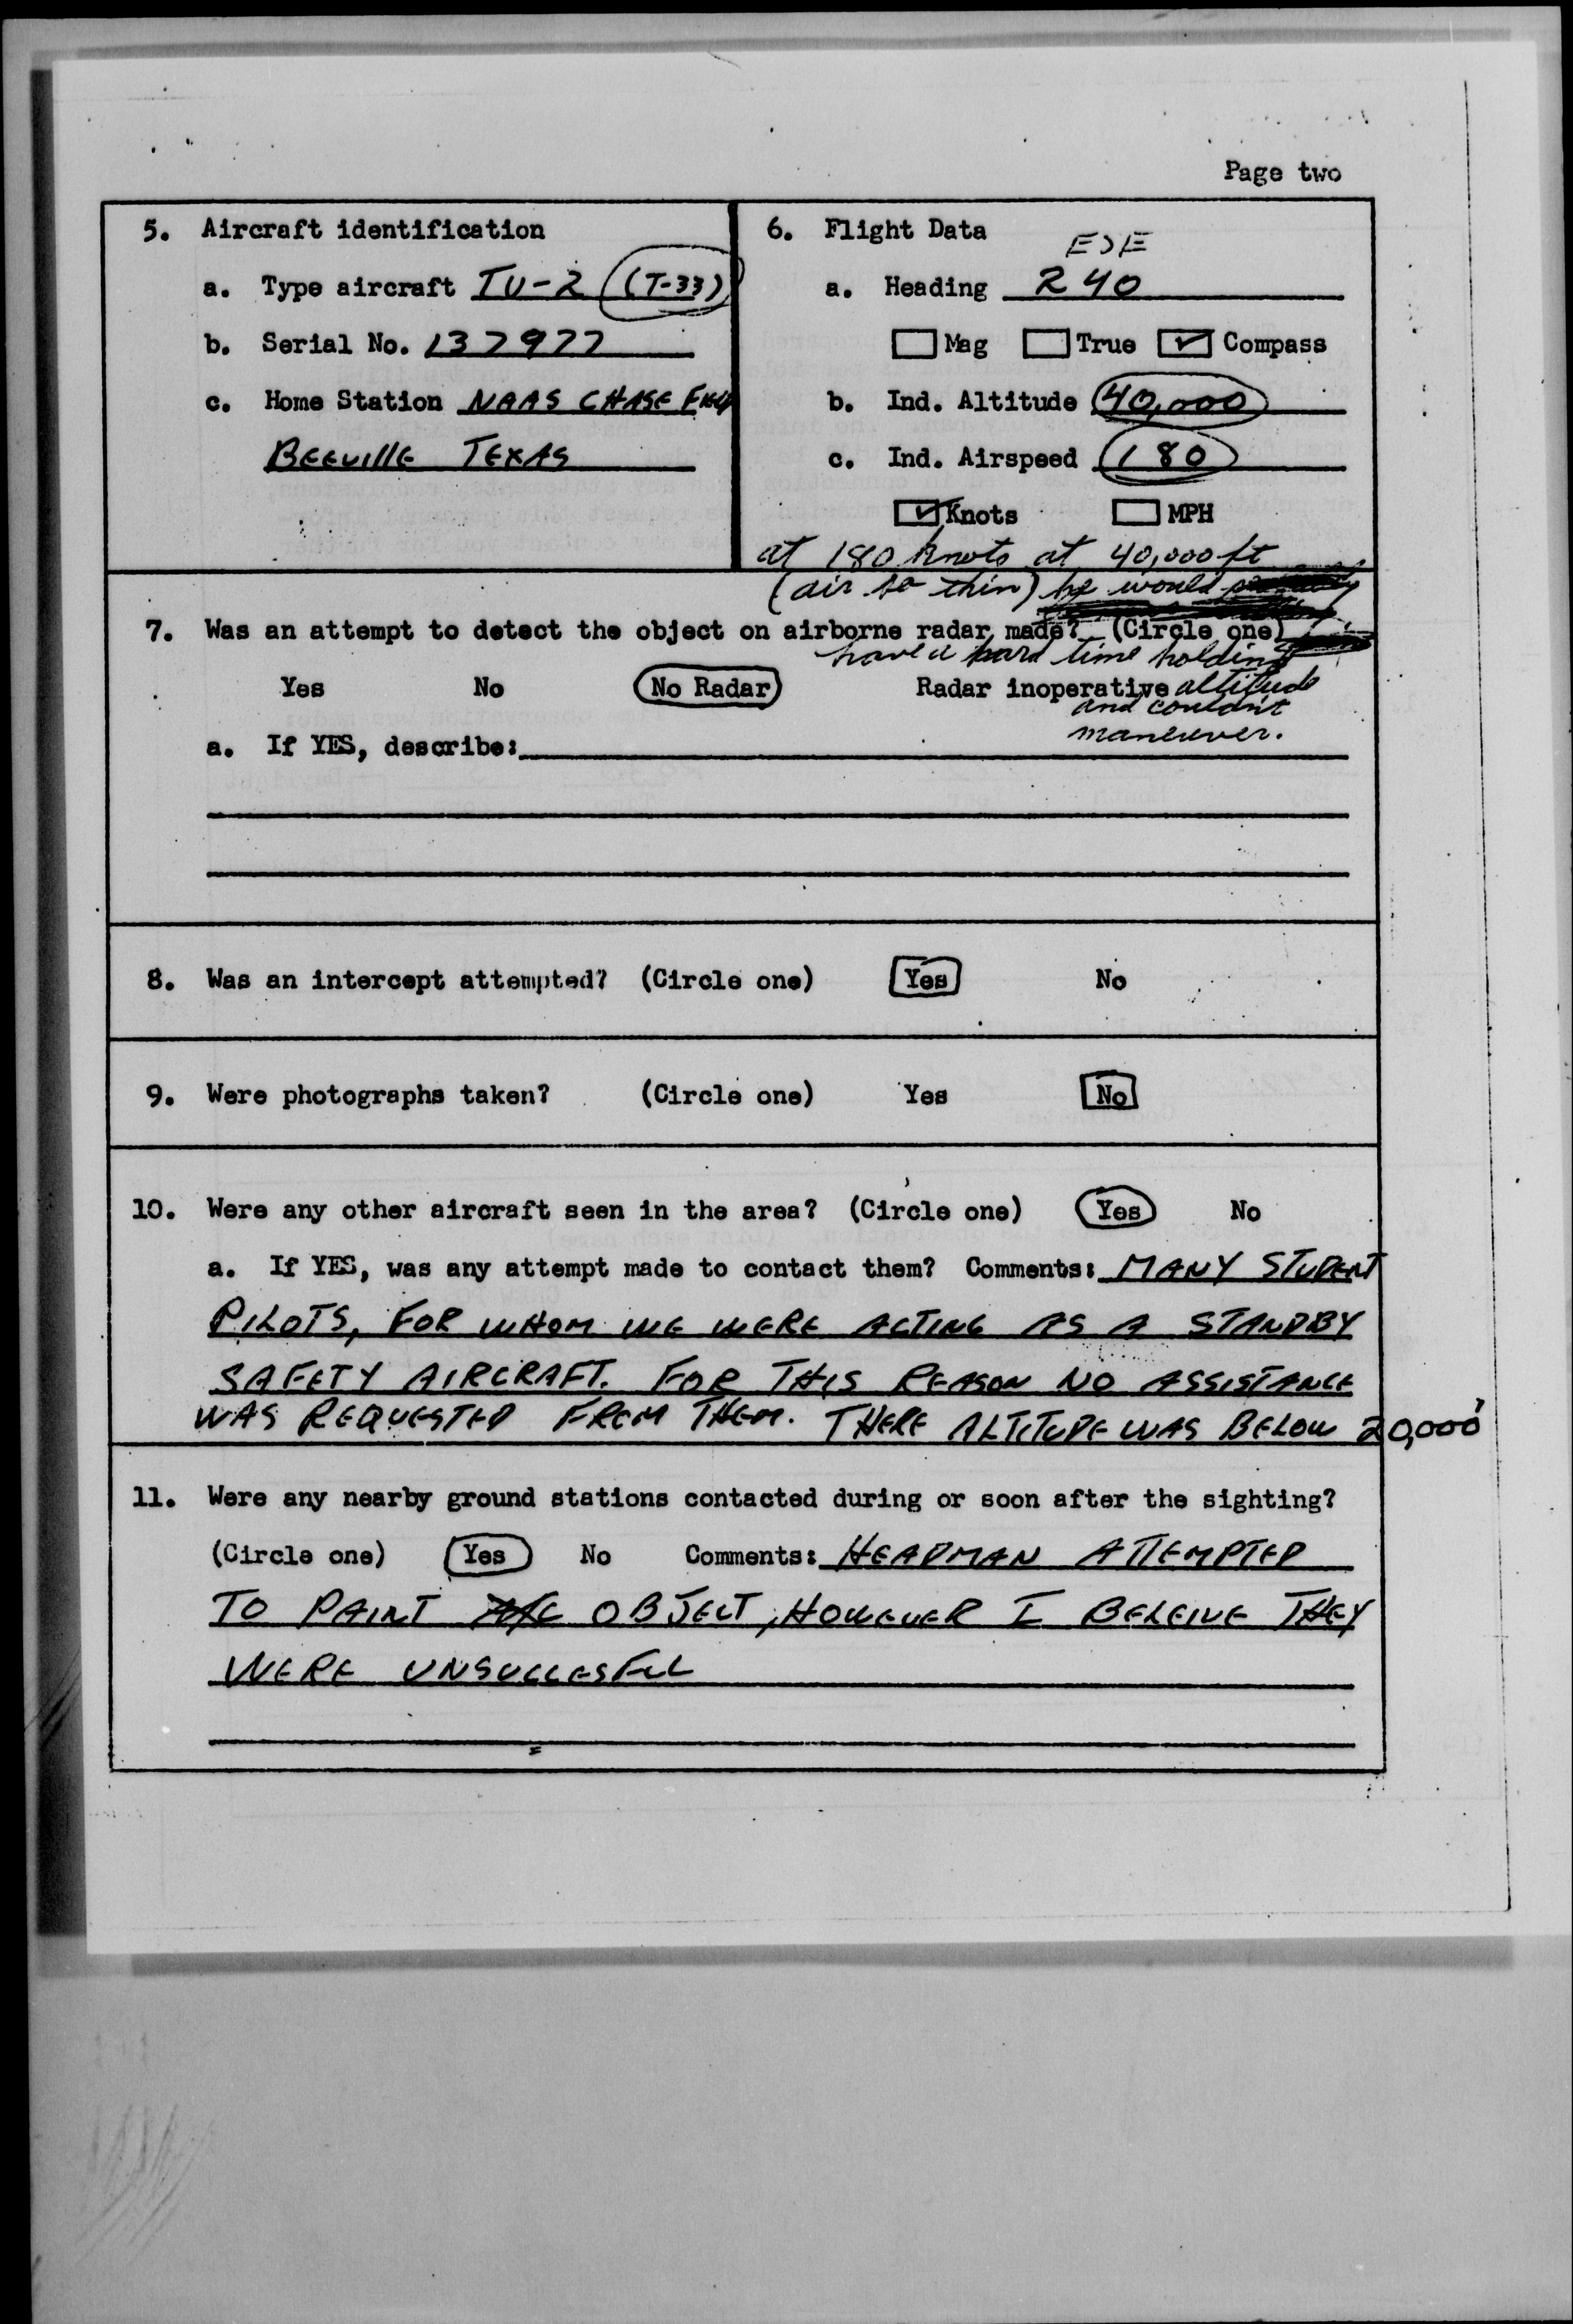 Page two
5. Aircraft identification
a. Type aircraft TV-2 (T-33)
b. Serial No. 137977
c. Home Station NAAS CHASE FIELD
BEEVILLE TEXAS
6. Flight Data
a. Heading 240
Mag True Compass
b. Ind. Altitude 40,000
c. Ind. Airspeed 180
Knots MPH
at 180 knots at 40,000 ft
(air so thin) he would
have a hard time holding
altitude
and couldn't
maneuver.
7. Was an attempt to detect the object on airborne radar made? (Circle one)
Yes No No Radar Radar inoperative
a. If YES, describe:
8. Was an intercept attempted? (Circle one) Yes No
9. Were photographs taken? (Circle one) Yes No
10. Were any other aircraft seen in the area? (Circle one) Yes No
a. If YES, was any attempt made to contact them? Comments: MANY STUDENT
PILOTS, FOR WHOM WE WERE ACTING AS A STANDBY
SAFETY AIRCRAFT. FOR THIS REASON NO ASSISTANCE
WAS REQUESTED FROM THEM. THERE ALTITUDE WAS BELOW 20,000'
11. Were any nearby ground stations contacted during or soon after the sighting?
(Circle one) Yes No Comments: HEADMAN ATTEMPTED
TO PAINT OBJECT, HOWEVER I BELEIVE THEY
WERE UNSUCCESFUL